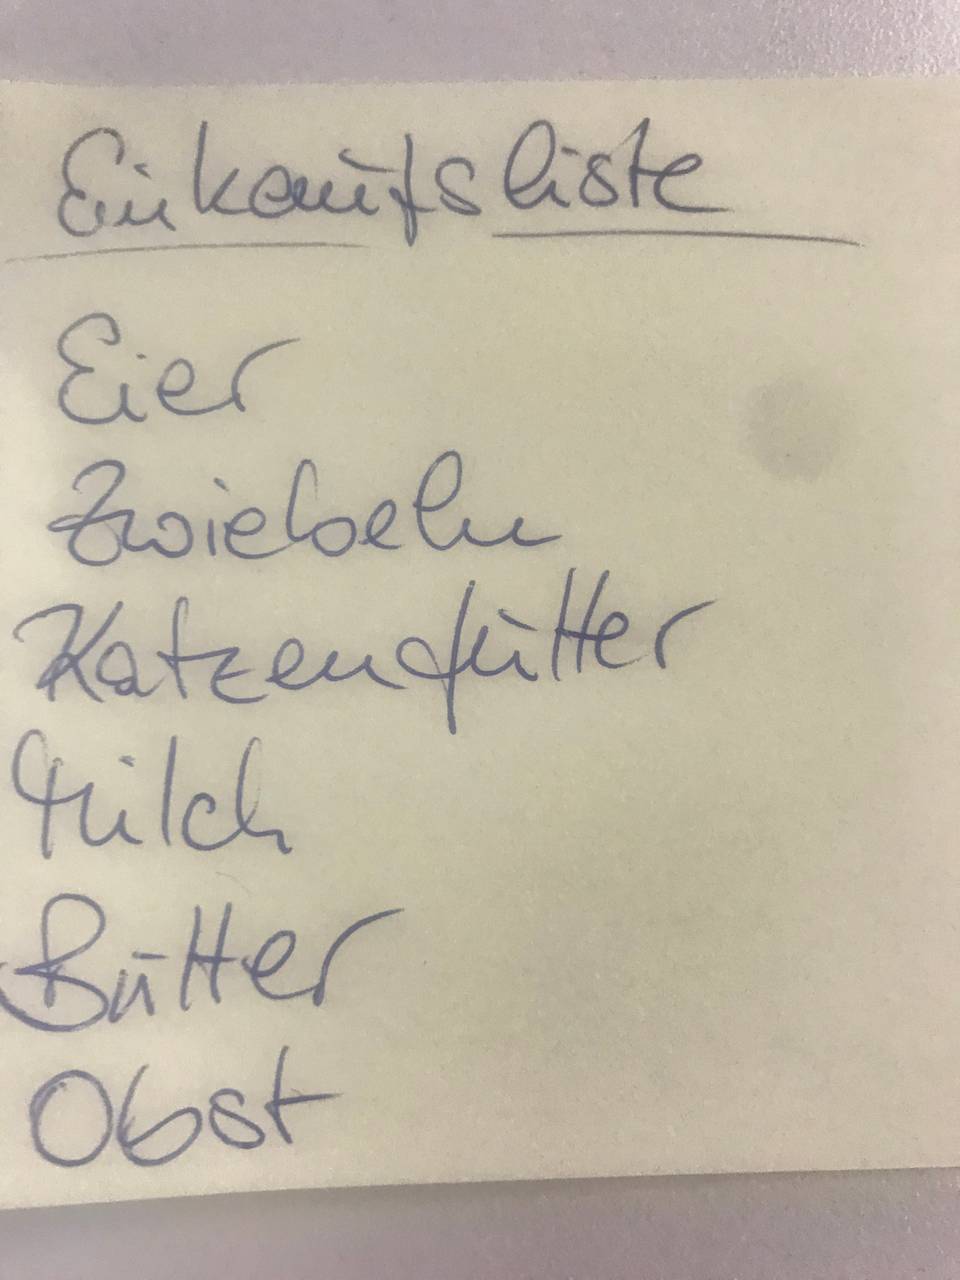 Einkaufsliste
Eier
Zwiebeln
Katzenfutter
Milch
Butter
Obst